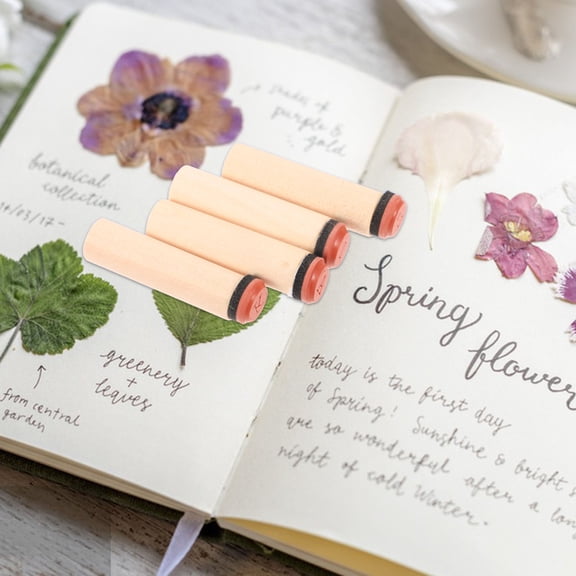 shades of
purple &
gold
botanical
collection
greenery
+
leaves
from central
garden
Spring
flower
today is the first day
of Spring! Sunshine & bright s
are so wonderful after a lon
night of cold winter.